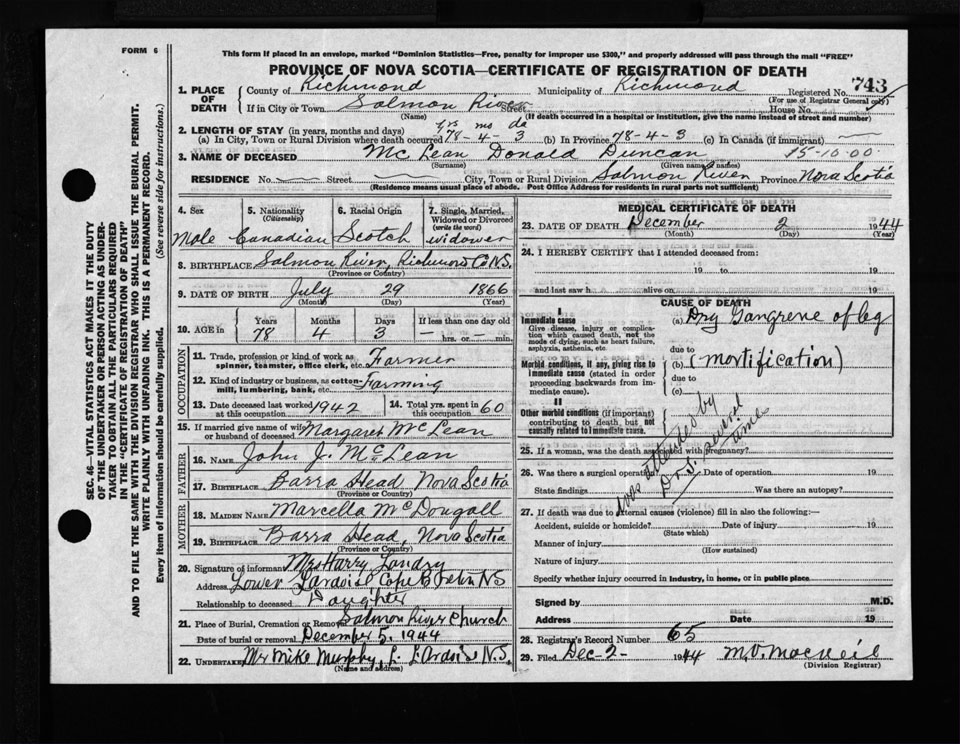 FORM 6
This form if placed in an envelope, marked "Dominion Statistics—Free, penalty for improper use $300," and properly addressed will pass through the mail "FREE"
PROVINCE OF NOVA SCOTIA—CERTIFICATE OF REGISTRATION OF DEATH
743
1. PLACE OF DEATH County of Richmond Municipality of Richmond Registered No.
(For use of Registrar General only)
If in City or Town Salmon River Street House No.
(Name) (If death occurred in a hospital or institution, give the name instead of street and number)
2. LENGTH OF STAY (in years, months and days) yrs mo da
(a) In City, Town or Rural Division where death occurred 78-4-3 (b) In Province 78-4-3 (c) In Canada (if immigrant)
3. NAME OF DECEASED McLean Donald Duncan 15-10-00
(Surname) (Given name or names)
RESIDENCE No. Street City, Town or Rural Division Salmon River Province Nova Scotia
(Residence means usual place of abode. Post Office Address for residents in rural parts not sufficient)
4. Sex 5. Nationality (Citizenship) 6. Racial Origin 7. Single, Married, Widowed or Divorced (write the word)
Male Canadian Scotch widower
8. BIRTHPLACE Salmon River, Richmond Co N.S.
(Province or Country)
9. DATE OF BIRTH July 29 1866
(Month) (Day) (Year)
10. AGE in Years Months Days If less than one day old
78 4 3 — hrs. or min.
OCCUPATION
11. Trade, profession or kind of work as spinner, teamster, office clerk, etc. Farmer
12. Kind of industry or business, as cotton-mill, lumbering, bank, etc. Farming
13. Date deceased last worked at this occupation 1942 14. Total yrs. spent in this occupation 60
15. If married give name of wife or husband of deceased Margaret McLean
FATHER
16. Name John J. McLean
17. Birthplace Barra Head Nova Scotia
(Province or Country)
MOTHER
18. Maiden Name Marcella McDougall
19. Birthplace Barra Head, Nova Scotia
(Province or Country)
20. Signature of informant Mrs Harry Landry
Address Lower Lardoise Cape Breton NS
Relationship to deceased Daughter
21. Place of Burial, Cremation or Removal Salmon River Church
Date of burial or removal December 5, 1944
22. Undertaker Mr Mike Murphy, L. L'Ardoise N.S.
(Name and address)
MEDICAL CERTIFICATE OF DEATH
23. DATE OF DEATH December 2 1944
(Month) (Day) (Year)
24. I HEREBY CERTIFY that I attended deceased from:
19 to 19
and last saw h alive on 19
CAUSE OF DEATH
I
Immediate cause (a) Dry Gangrene of leg
Give disease, injury or complication which caused death, not the mode of dying, such as heart failure, asphyxia, asthenia, etc.
due to
Morbid conditions, if any, giving rise to immediate cause (stated in order proceeding backwards from immediate cause). (b) (mortification)
due to
(c)
II
Other morbid conditions (if important) contributing to death, but not causally related to immediate cause.
Was attended by Dr. several times
25. If a woman, was the death associated with pregnancy?
26. Was there a surgical operation? Date of operation 19
State findings Was there an autopsy?
27. If death was due to external causes (violence) fill in also the following:—
Accident, suicide or homicide? Date of injury 19
(State which)
Manner of injury
(How sustained)
Nature of injury
Specify whether injury occurred in industry, in home, or in public place
Signed by M.D.
Address Date 19
28. Registrar's Record Number 65
29. Filed Dec-2- 1944 M.D. MacNeil
(Division Registrar)
SEC. 46—VITAL STATISTICS ACT MAKES IT THE DUTY
OF THE UNDERTAKER OR PERSON ACTING AS UNDER-
TAKER TO OBTAIN ALL THE PARTICULARS REQUIRED
IN THE "CERTIFICATE OF REGISTRATION OF DEATH"
AND TO FILE THE SAME WITH THE DIVISION REGISTRAR WHO SHALL ISSUE THE BURIAL PERMIT.
WRITE PLAINLY WITH UNFADING INK. THIS IS A PERMANENT RECORD.
Every item of information should be carefully supplied. (See reverse side for instructions.)